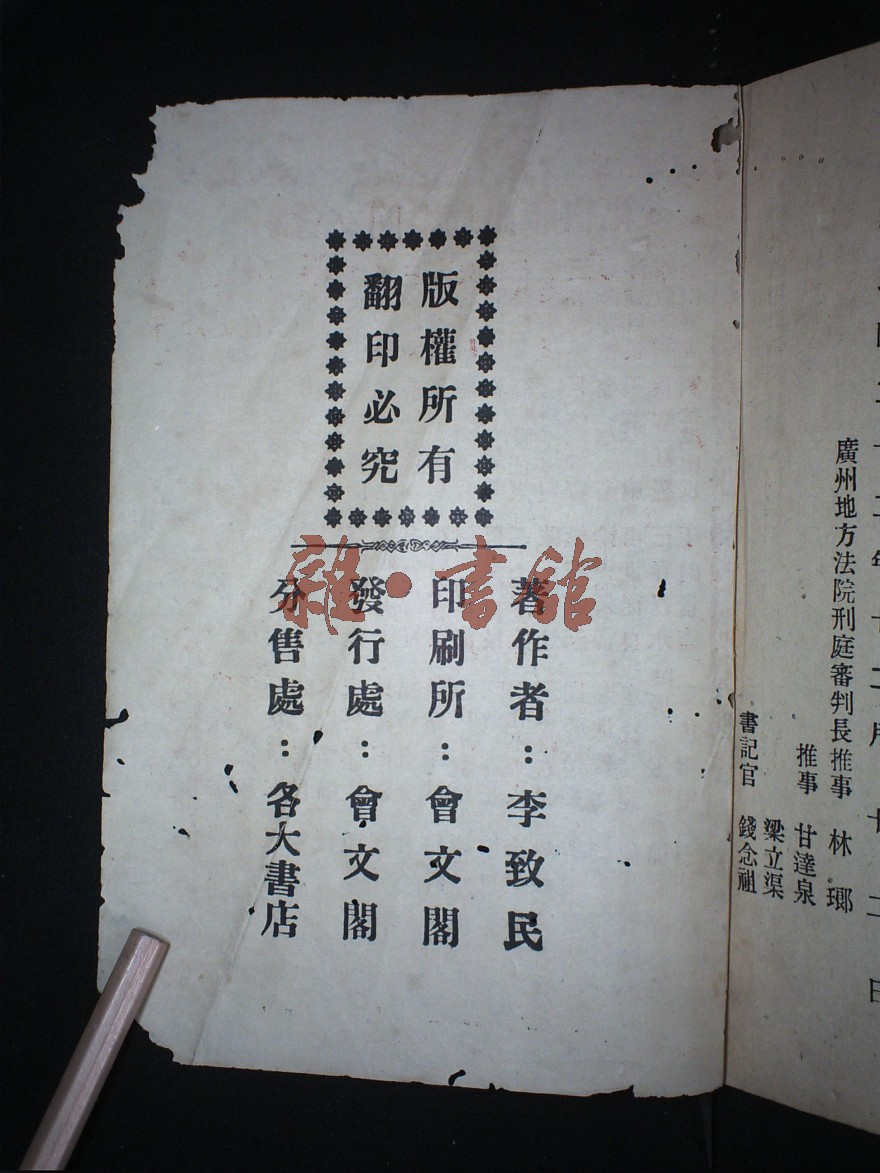 廣州地方法院刑庭審判長推事 林瑯
推事 甘達泉
梁立渠
書記官 錢念祖
版權所有
翻印必究
著作者：李致民
印刷所：會文閣
發行處：會文閣
分售處：各大書店
雜·書館